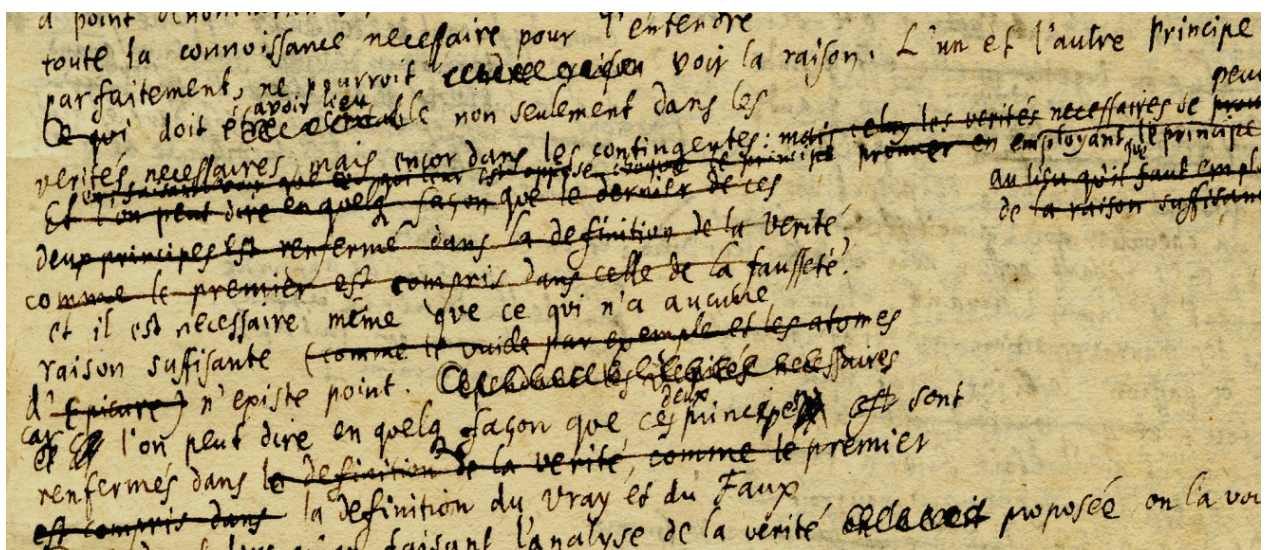 toute la connoissance necessaire pour l'entendre
parfaitement, ne pourroit voir la raison. L'un et l'autre Principe
Ce qui doit avoir lieu non seulement dans les
verités necessaires mais encor dans les contingentes: mais les verités necessaires se peuv
prouver en employant le principe
au lieu qu'il faut emplo
de la raison suffisan
Et l'on peut dire en quelq façon que le dernier de ces
deux principes est renfermé dans la definition de la verité
comme le premier est compris dans celle de la fausseté.
et il est necessaire même que ce qui n'a aucune
raison suffisante (comme le vuide par exemple et les atomes
d'Epicure) n'existe point. necessaires
car et l'on peut dire en quelq façon que ces deux principes est sont
renfermés dans le definition de la verité, comme le premier
est compris dans la definition du Vray et du Faux
faisant l'analyse de la verité proposée on la voi